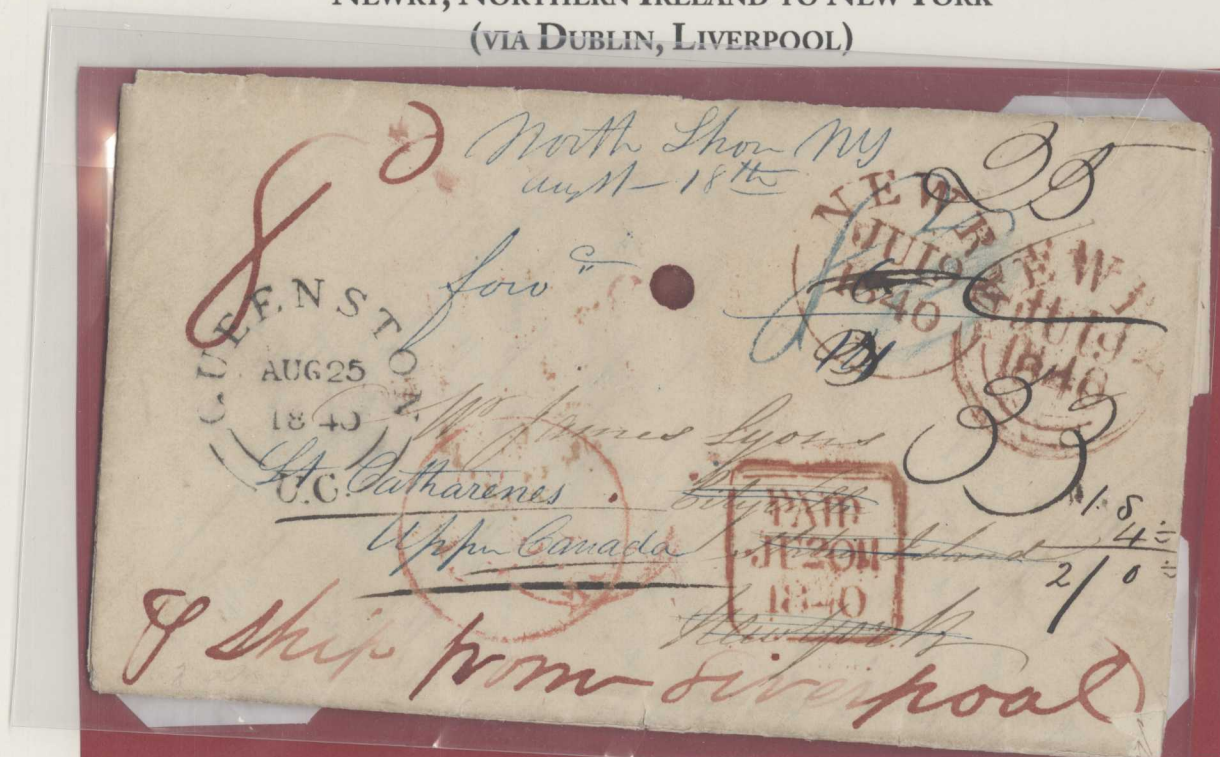 NEWRY, NORTHERN IRELAND TO NEW YORK
(VIA DUBLIN, LIVERPOOL)
8d
North Shore NY
Augst 18th
forwd
25
NEWRY
JU19
1840
NEWRY
JU19
1840
QUEENSTON
AUG 25
1840
U.C.
Mr James Lyons
33
St Catharenes
Upper Canada
Island
New York
PAID
JU20M
1840
1:8
4=
2/0=
P ship from Liverpool